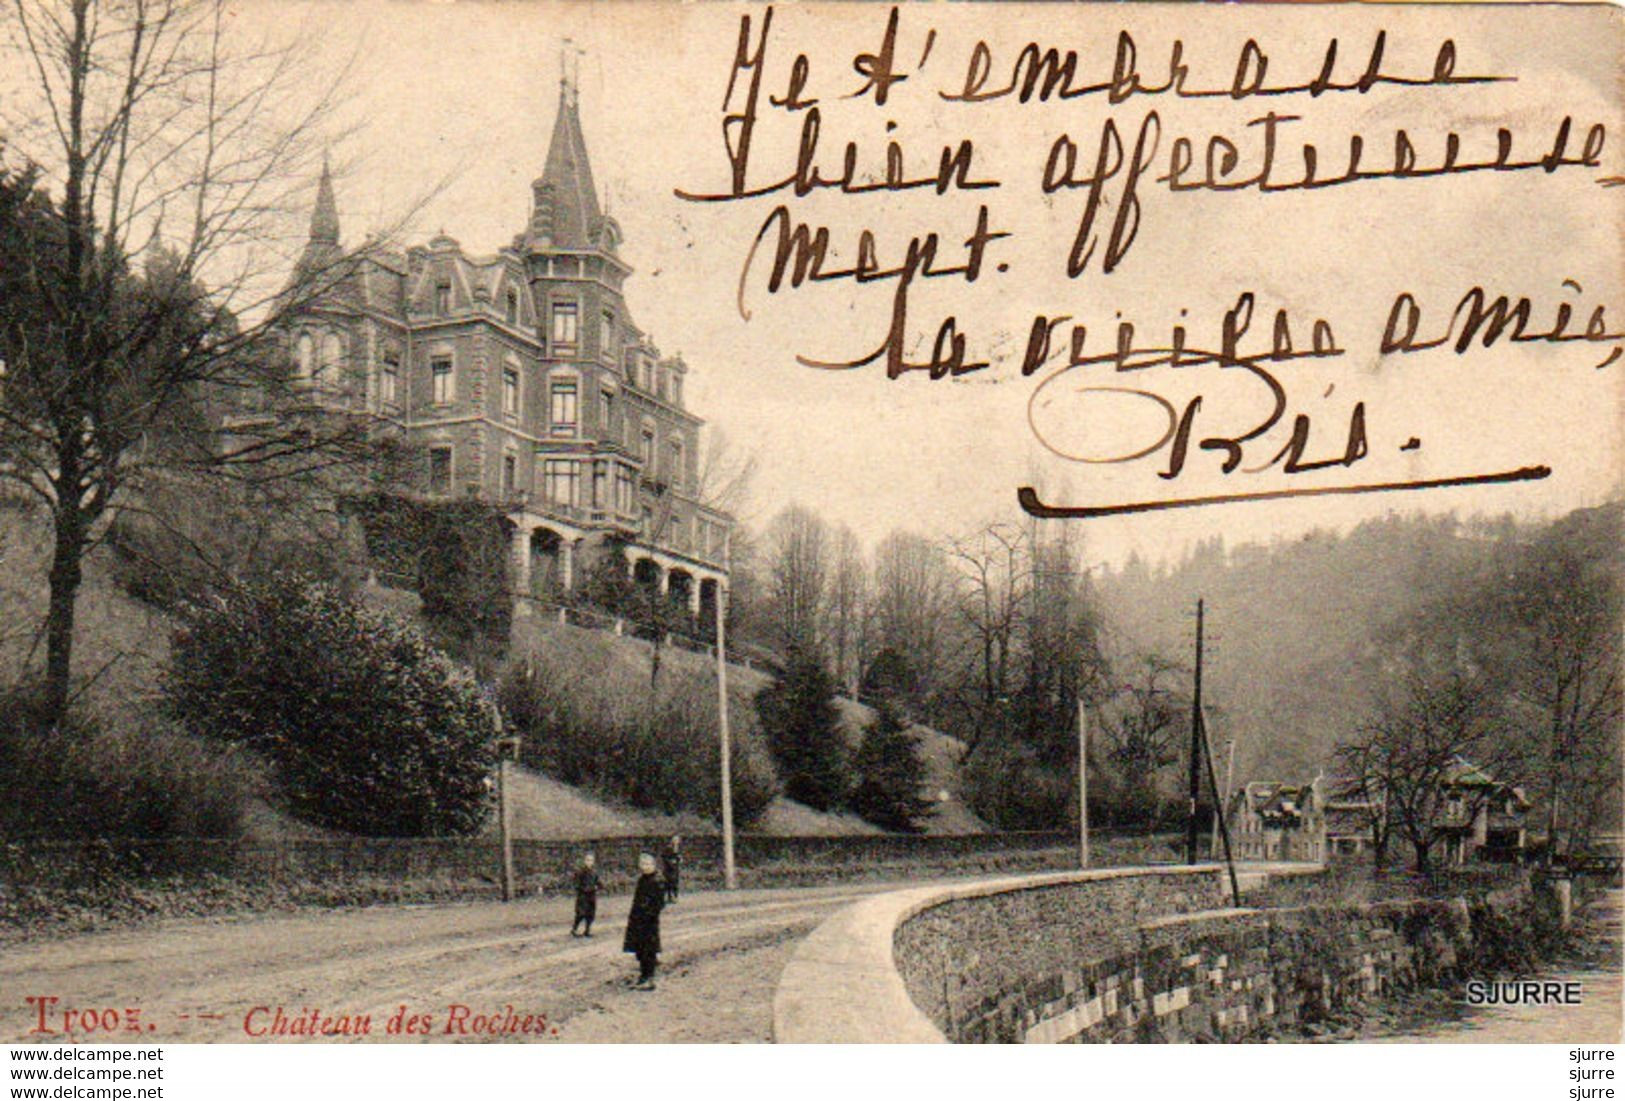 Je t'embrasse
bien affectueuse-
ment.
ta vieille amie,
Ris.
Trooz. -- Château des Roches.
SJURRE
www.delcampe.net
www.delcampe.net
www.delcampe.net
sjurre
sjurre
sjurre